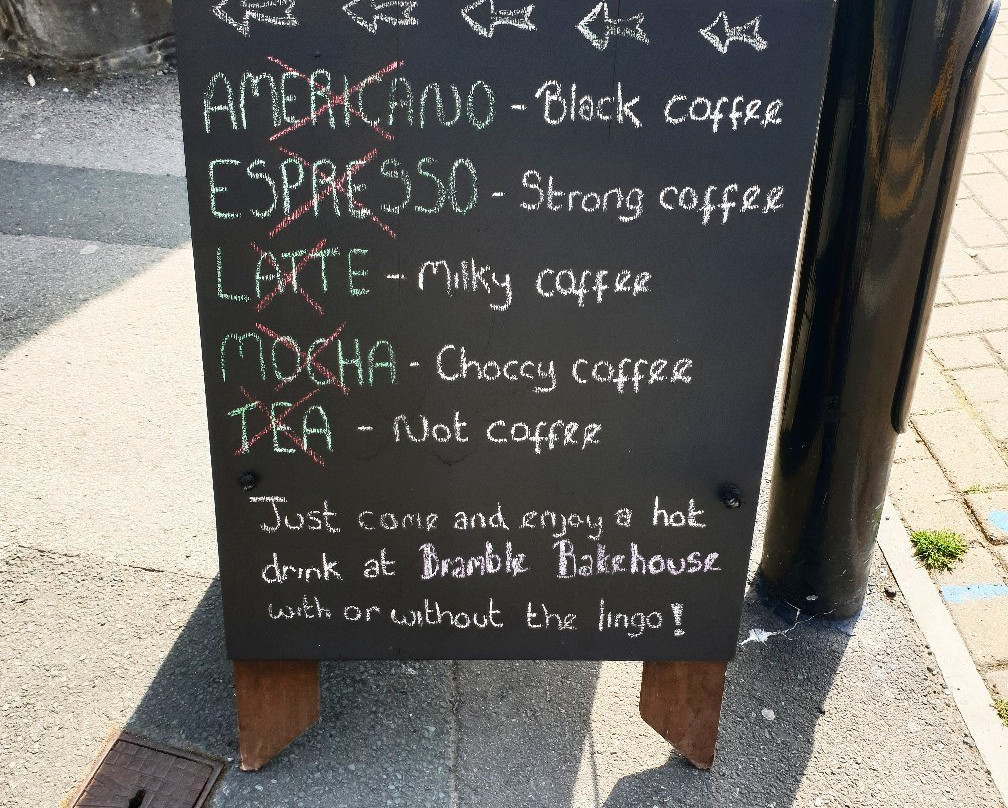 AMERICANO - Black coffee
ESPRESSO - Strong coffee
LATTE - Milky coffee
MOCHA - Choccy coffee
TEA - Not coffee
Just come and enjoy a hot
drink at Bramble Bakehouse
with or without the lingo!